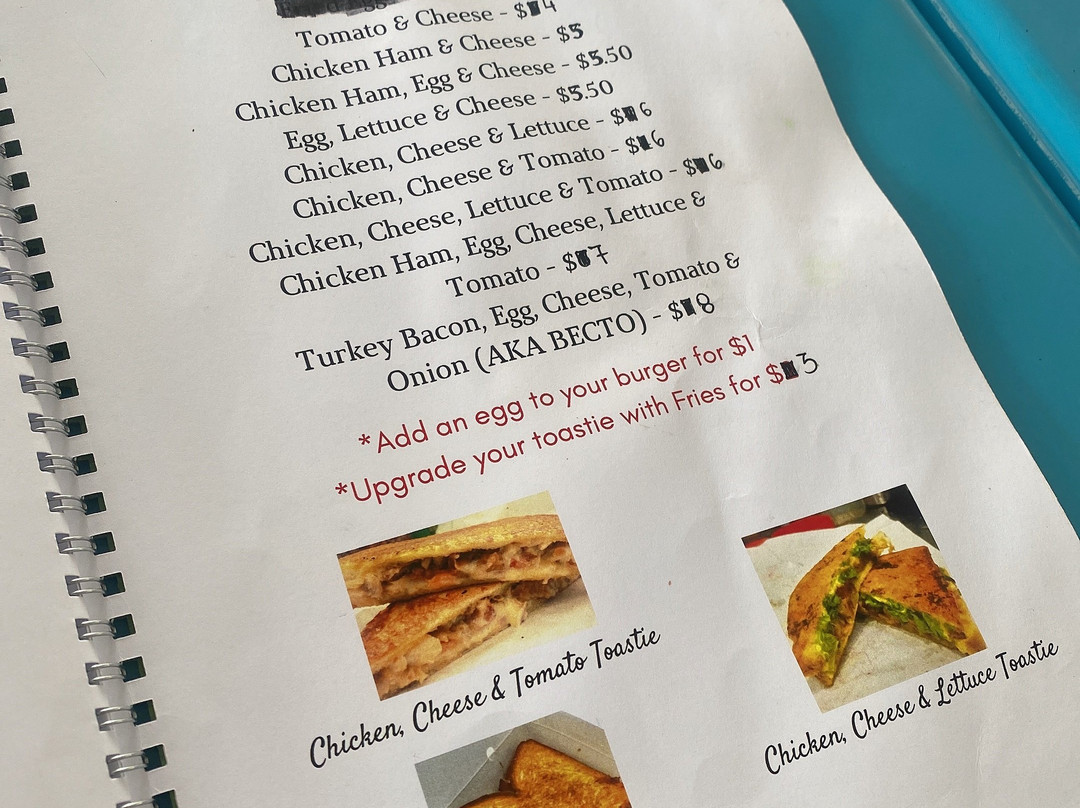 Tomato & Cheese - $4
Chicken Ham & Cheese - $5
Chicken Ham, Egg & Cheese - $5.50
Egg, Lettuce & Cheese - $5.50
Chicken, Cheese & Lettuce - $6
Chicken, Cheese & Tomato - $6
Chicken, Cheese, Lettuce & Tomato - $6
Chicken Ham, Egg, Cheese, Lettuce &
Tomato - $7
Turkey Bacon, Egg, Cheese, Tomato &
Onion (AKA BECTO) - $8
*Add an egg to your burger for $1
*Upgrade your toastie with Fries for $3
Chicken, Cheese & Tomato Toastie
Chicken, Cheese & Lettuce Toastie